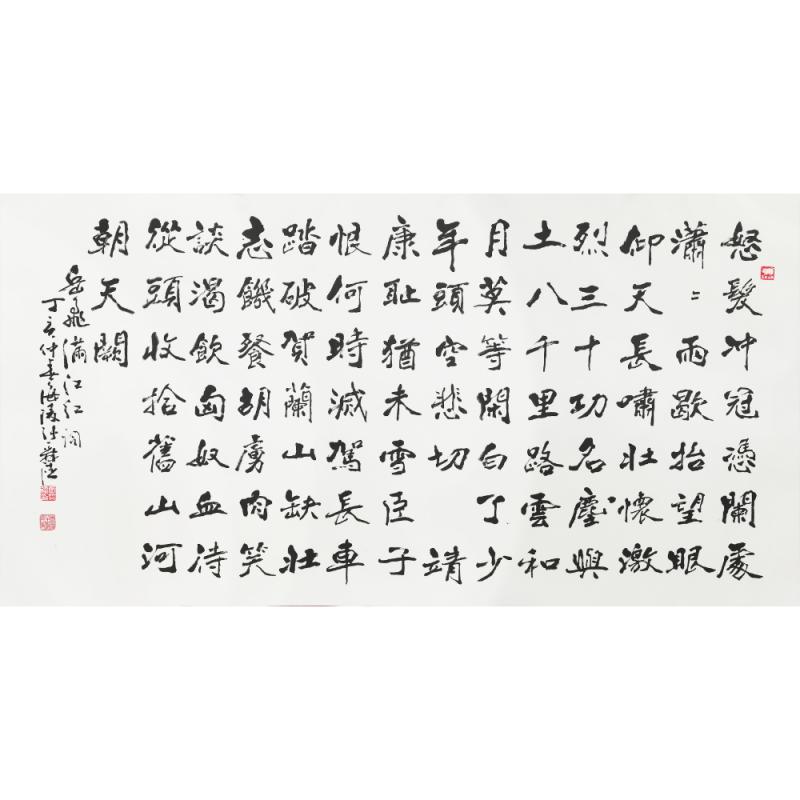 怒髮冲冠憑闌處
瀟〻雨歇抬望眼
仰天長嘯壯懷激
烈三十功名塵與
土八千里路雲和
月莫等閑白了少
年頭空悲切 靖
康恥猶未雪臣子
恨何時滅駕長車
踏破賀蘭山缺壯
志饑餐胡虜肉笑
談渴飲匈奴血待
從頭收拾舊山河
朝天闕
岳飛滿江紅詞
丁亥仲春海陵